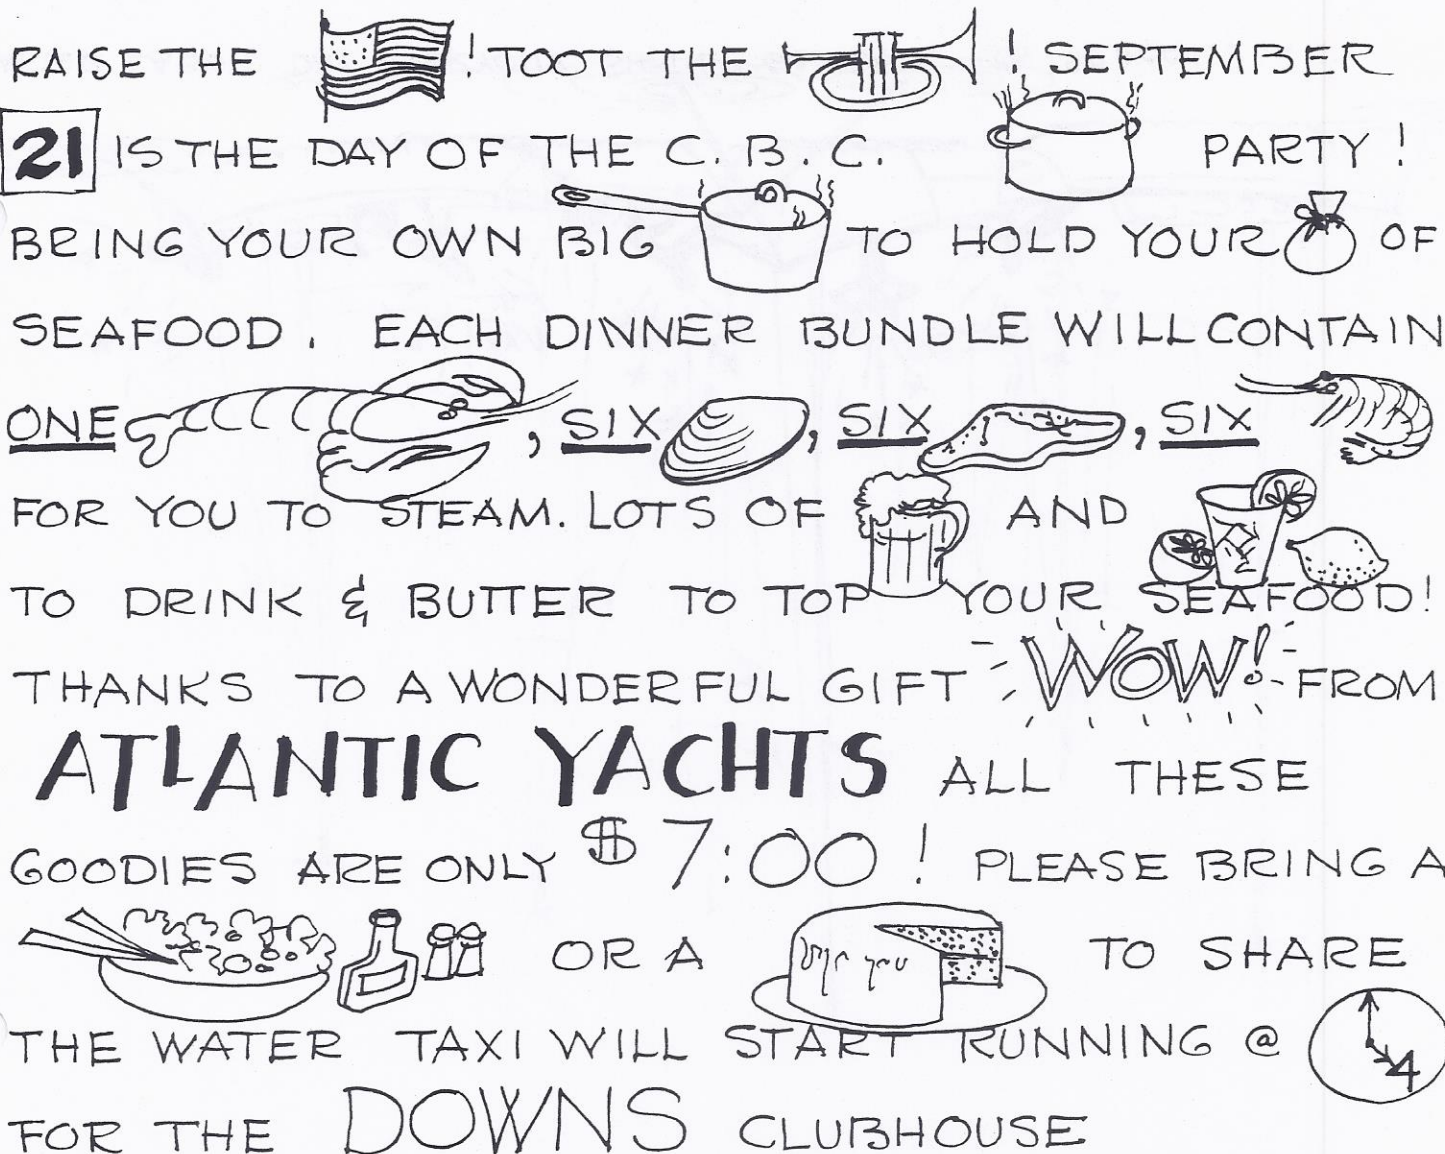 RAISE THE ! TOOT THE ! SEPTEMBER
21 IS THE DAY OF THE C.B.C. PARTY!
BRING YOUR OWN BIG TO HOLD YOUR OF
SEAFOOD. EACH DINNER BUNDLE WILL CONTAIN
ONE , SIX , SIX , SIX
FOR YOU TO STEAM. LOTS OF AND
TO DRINK & BUTTER TO TOP YOUR SEAFOOD!
THANKS TO A WONDERFUL GIFT WOW! FROM
ATLANTIC YACHTS ALL THESE
GOODIES ARE ONLY $7:00! PLEASE BRING A
OR A TO SHARE
THE WATER TAXI WILL START RUNNING @ 4
FOR THE DOWNS CLUBHOUSE